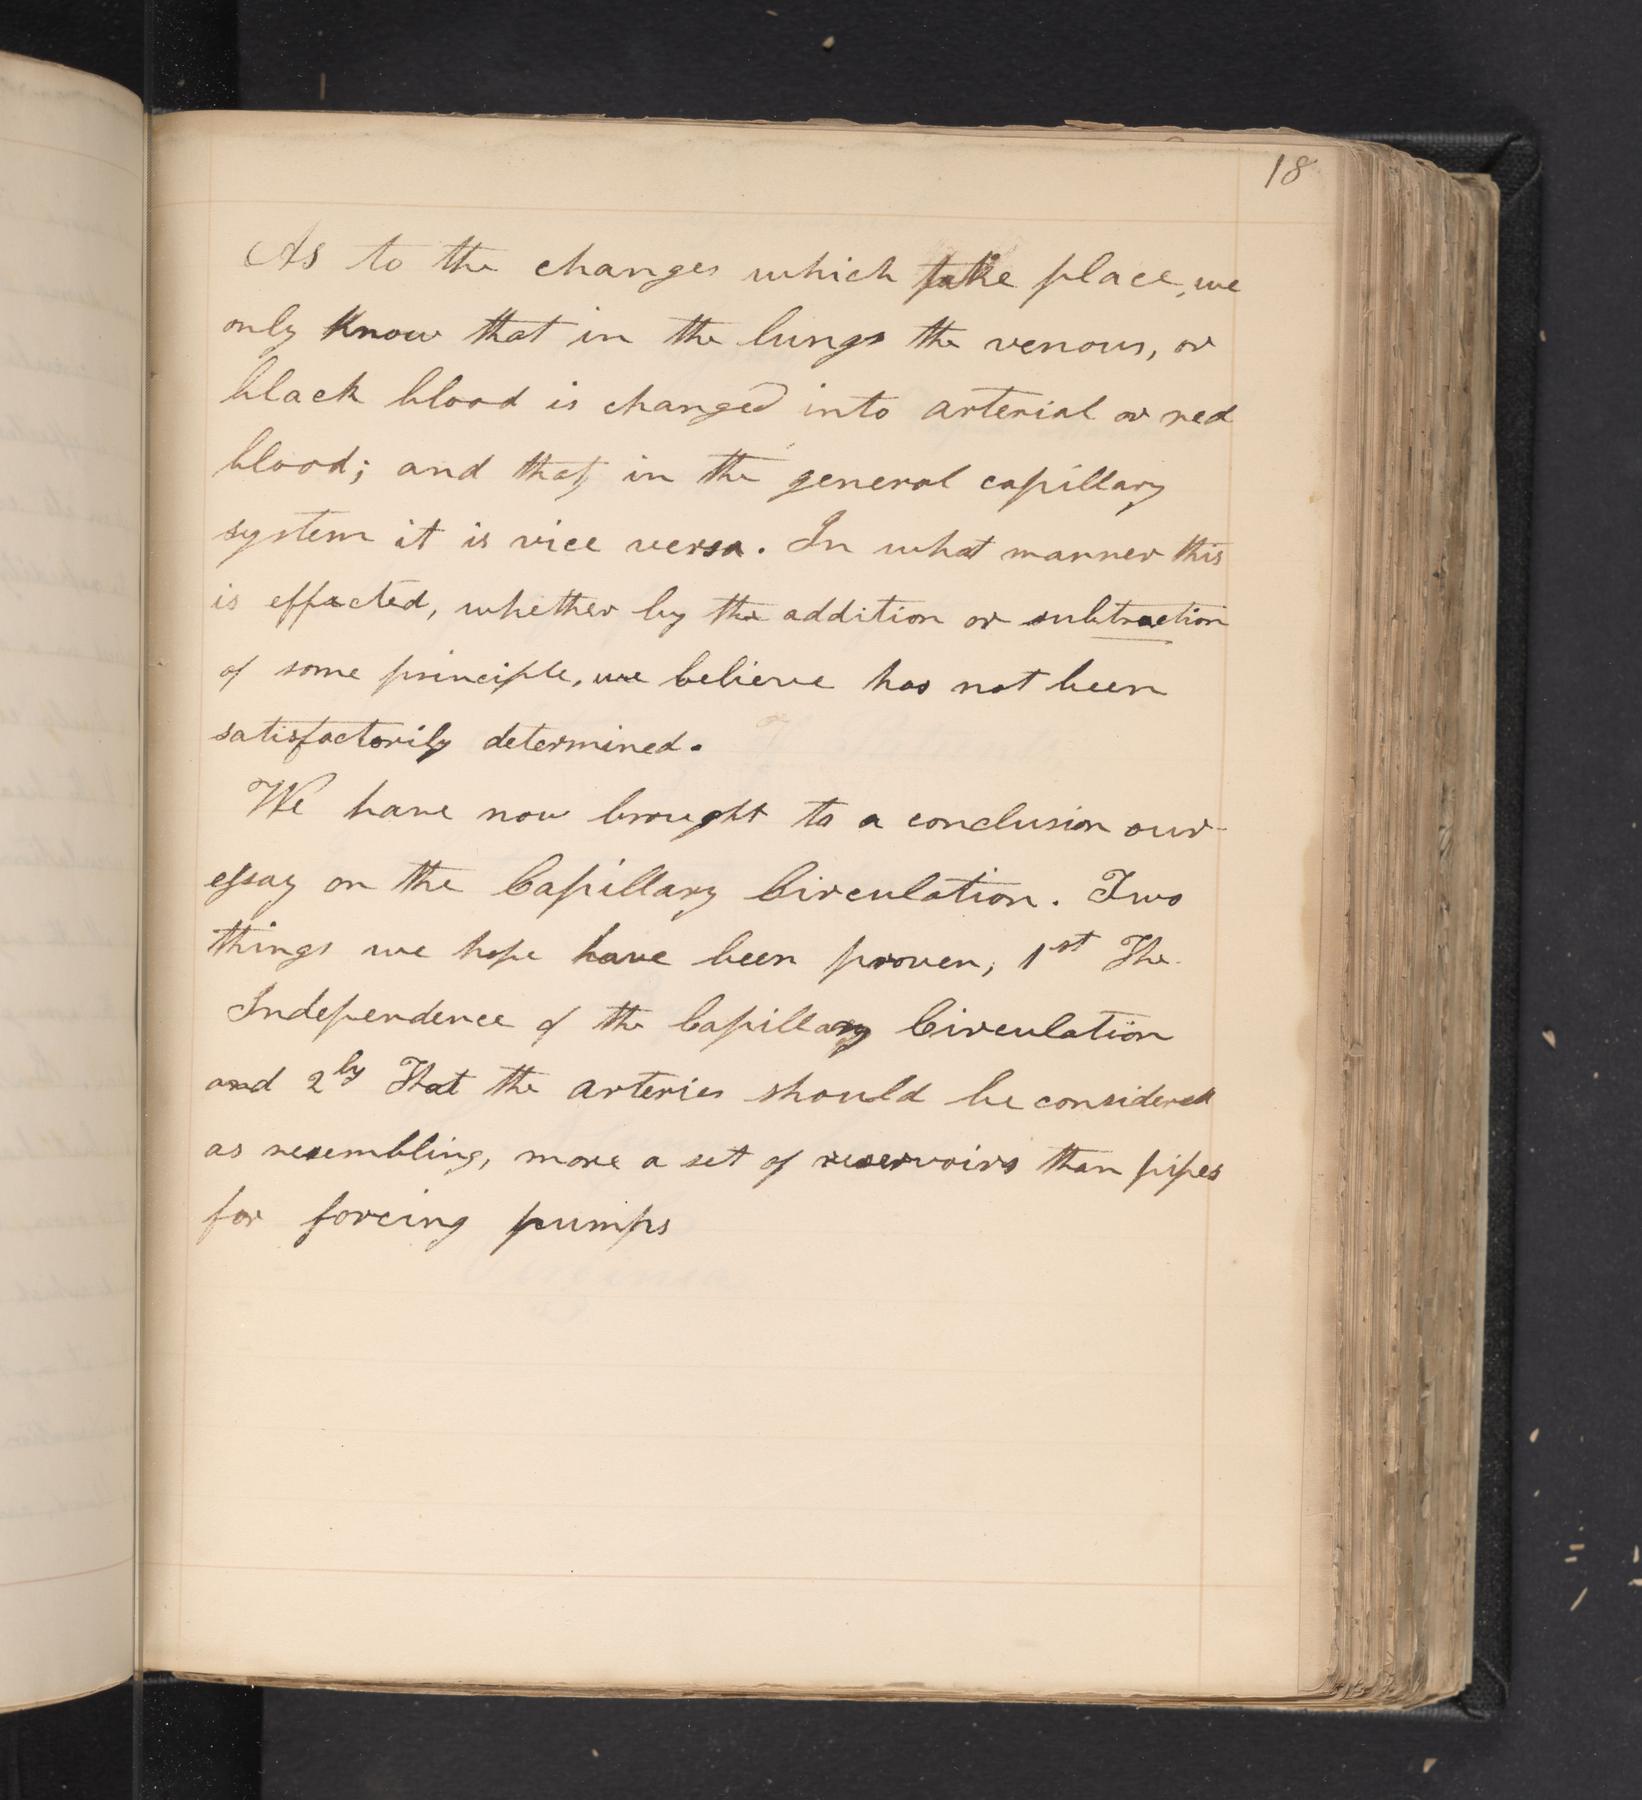 18
As to the changes which take place, we
only know that in the lungs the venous, or
black blood is changed into arterial or red
blood; and that, in the general capillary
system it is vice versa. In what manner this
is effected, whether by the addition or subtraction
of some principle, we believe has not been
satisfactorily determined.
We have now brought to a conclusion our
essay on the Capillary Circulation. Two
things we hope have been proven, 1st The
Independence of the Capillary Circulation
and 2ly That the arteries should be considered
as resembling, more a set of reservoirs than pipes
for forcing pumps